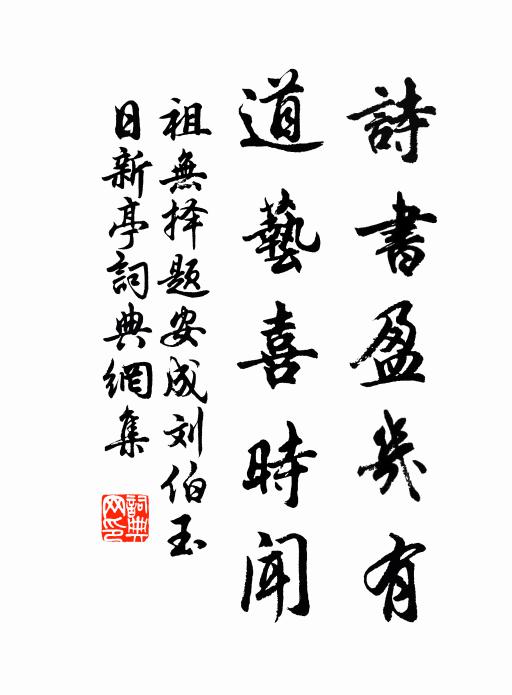 詩書盈幾有
道藝喜時聞
祖無择题安成刘伯玉
日新亭詞典網集
詞典网印